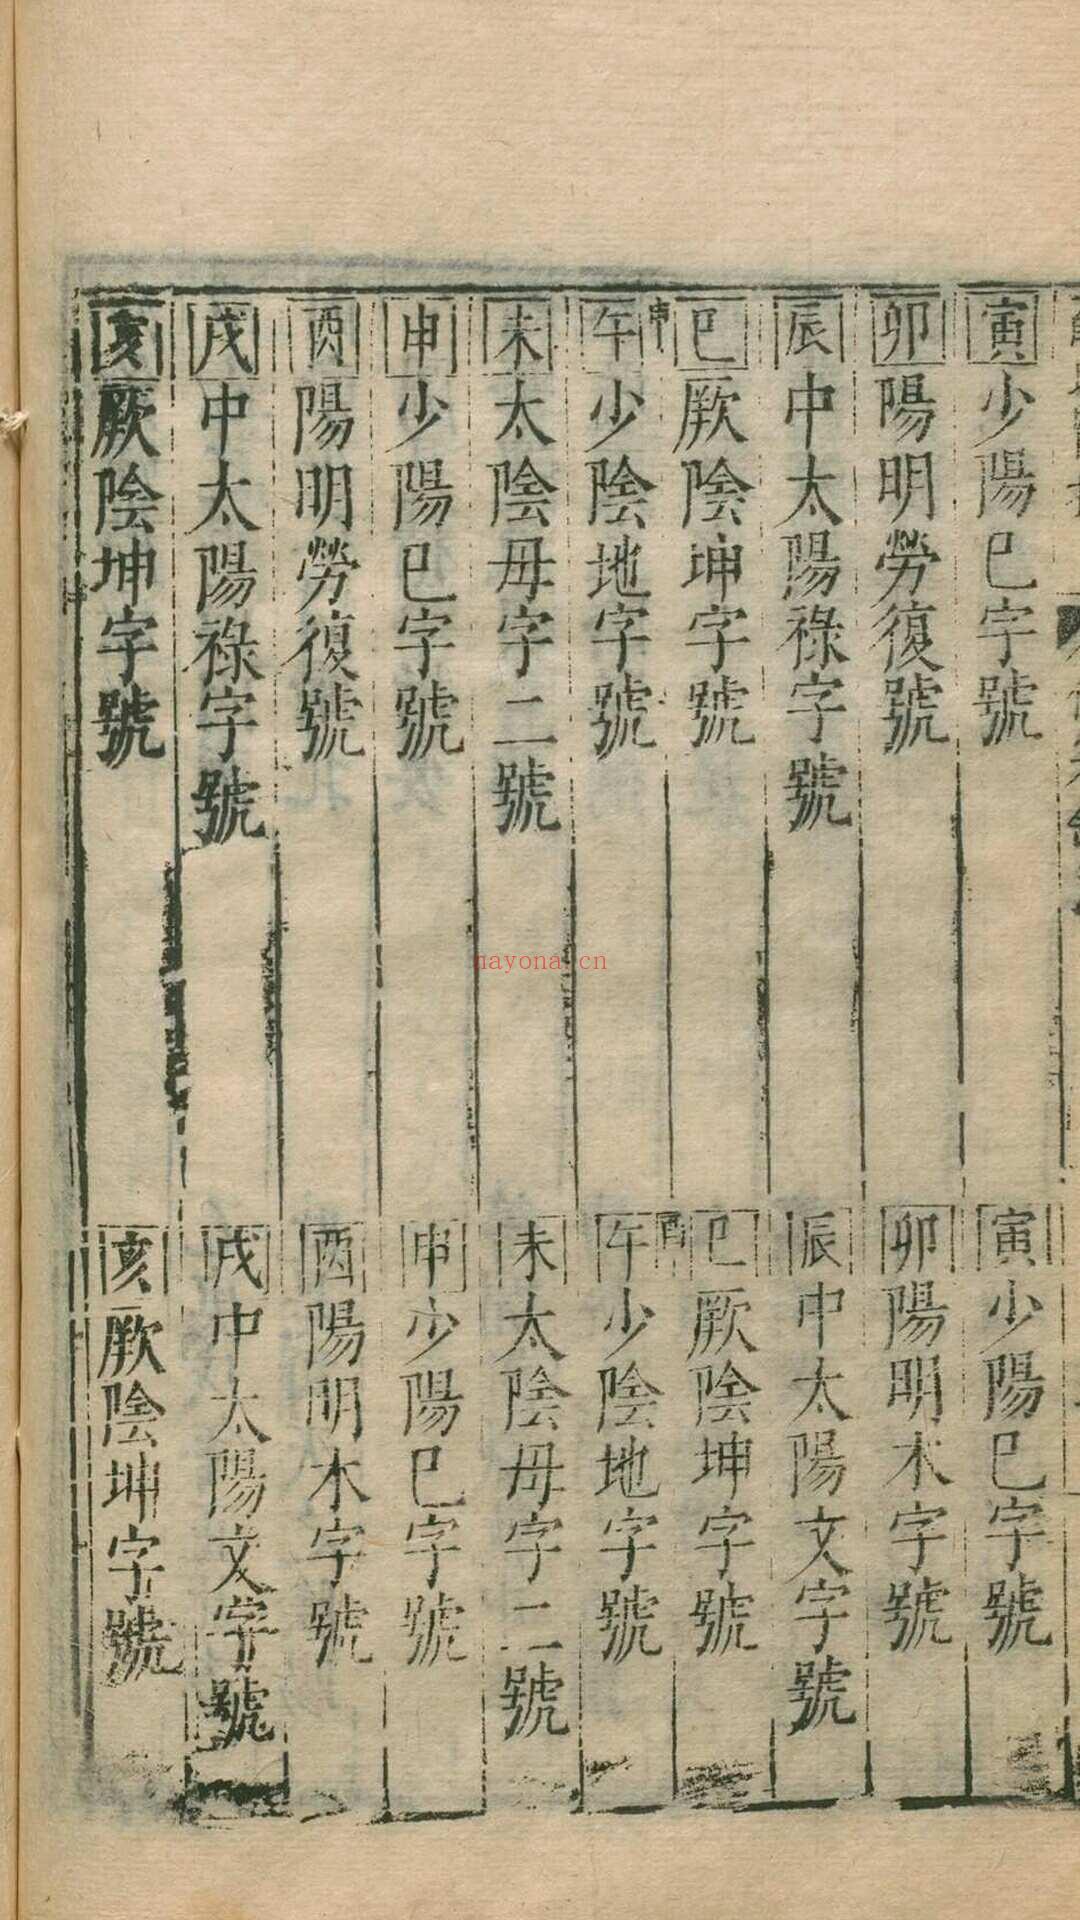 寅少陽巳字號
寅少陽巳字號
卯陽明勞復號
卯陽明木字號
辰中太陽祿字號
辰中太陽文字號
巳厥陰坤字號
巳厥陰坤字號
申
酉
午少陰地字號
午少陰地字號
未太陰毋字二號
未太陰毋字二號
申少陽巳字號
申少陽巳字號
酉陽明勞復號
酉陽明木字號
戌中太陽祿字號
戌中太陽文字號
亥厥陰坤字號
亥厥陰坤字號
nayona.cn